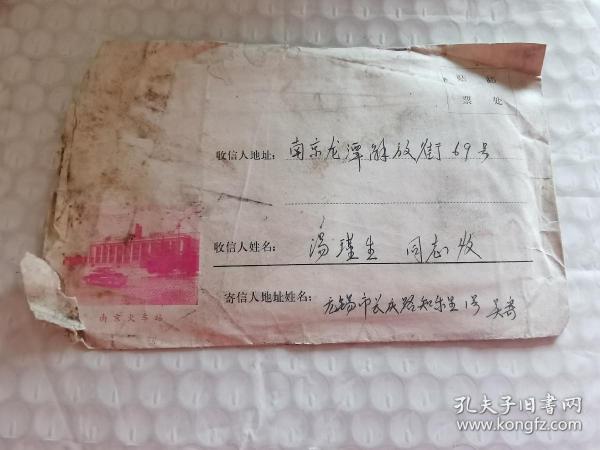 贴邮
票处
收信人地址：南京龙潭解放街69号
收信人姓名：汤瑾生 同志收
寄信人地址姓名：无锡市长庆路知乐里1号 吴寄
南京火车站
孔夫子旧书网
www.kongfz.com